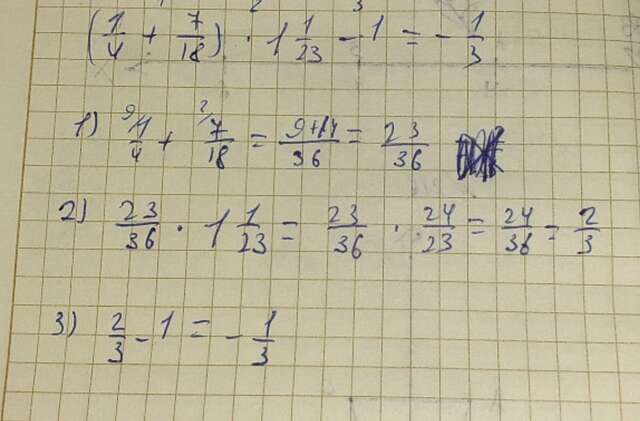 (1/4 + 7/18) · 1 1/23 - 1 = - 1/3
1) 9 1/4 + 2 7/18 = 9+14/36 = 23/36
2) 23/36 · 1 1/23 = 23/36 · 24/23 = 24/36 = 2/3
3) 2/3 - 1 = - 1/3